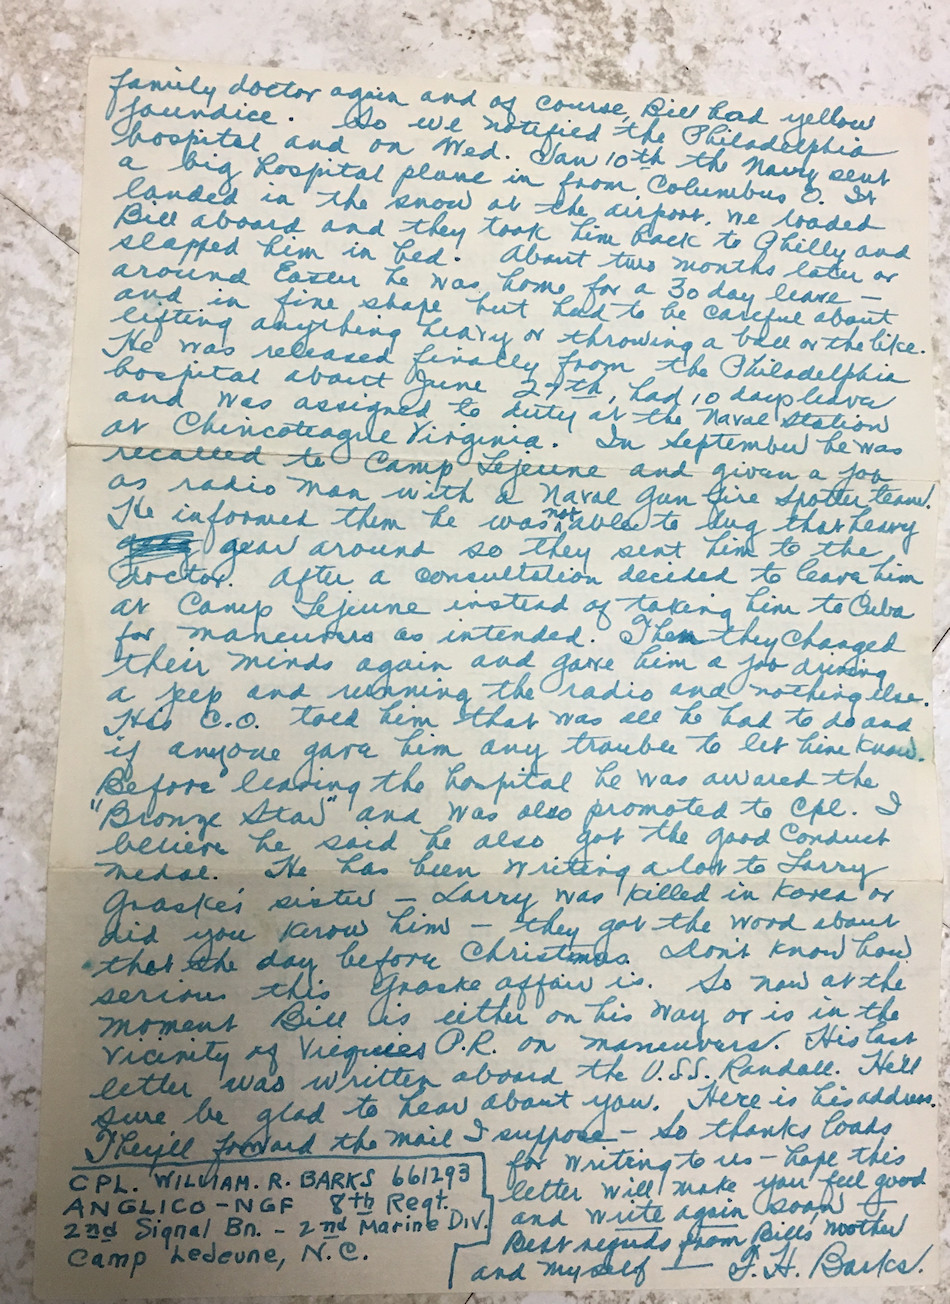 family doctor again and of course, Bill had yellow
jaundice. So we notified the Philadelphia
hospital and on Wed. Jan 10th the Navy sent
a big hospital plane in from Columbus O. It
landed in the snow at the airport, we loaded
Bill aboard and they took him back to Philly and
slapped him in bed. About two months later or
around Easter he was home for a 30 day leave –
and in fine shape but had to be careful about
lifting anything heavy or throwing a ball or the like.
He was released finally from the Philadelphia
hospital about June 27th, had 10 days leave
and was assigned to duty at the Naval Station
at Chincoteague Virginia. In September he was
recalled to Camp Lejeune and given a job
as radio man with a Naval Gun fire Spotter team.
He informed them he was not able to lug that heavy
gear around so they sent him to the
doctor. After a consultation decided to leave him
at Camp Lejeune instead of taking him to Cuba
for maneuvers as intended. Then they changed
their minds again and gave him a job driving
a jeep and running the radio and nothing else.
His C.O. told him that was all he had to do and
if anyone gave him any trouble to let him know.
Before leaving the hospital he was awared the
"Bronze Star" and was also promoted to Cpl. I
believe he said he also got the Good Conduct
medal. He has been writing a lot to Larry
Graske's sister – Larry was killed in Korea or
did you know him – they got the word about
that the day before Christmas. Don't know how
serious this Graske affair is. So now at the
moment Bill is either on his way or is in the
vicinity of Vieques P.R. on maneuvers. His last
letter was written aboard the U.S.S. Randall. He'll
sure be glad to hear about you. Here is his address.
They'll forward the mail I suppose – So thanks loads
for writing to us – hope this
letter will make you feel good
and write again soon –
Best regards from Bill's mother
and myself — F. H. Barks.
CPL. WILLIAM. R. BARKS 661293
ANGLICO-NGF 8th Regt.
2nd Signal Bn. – 2nd Marine Div.
Camp LeJeune, N.C.